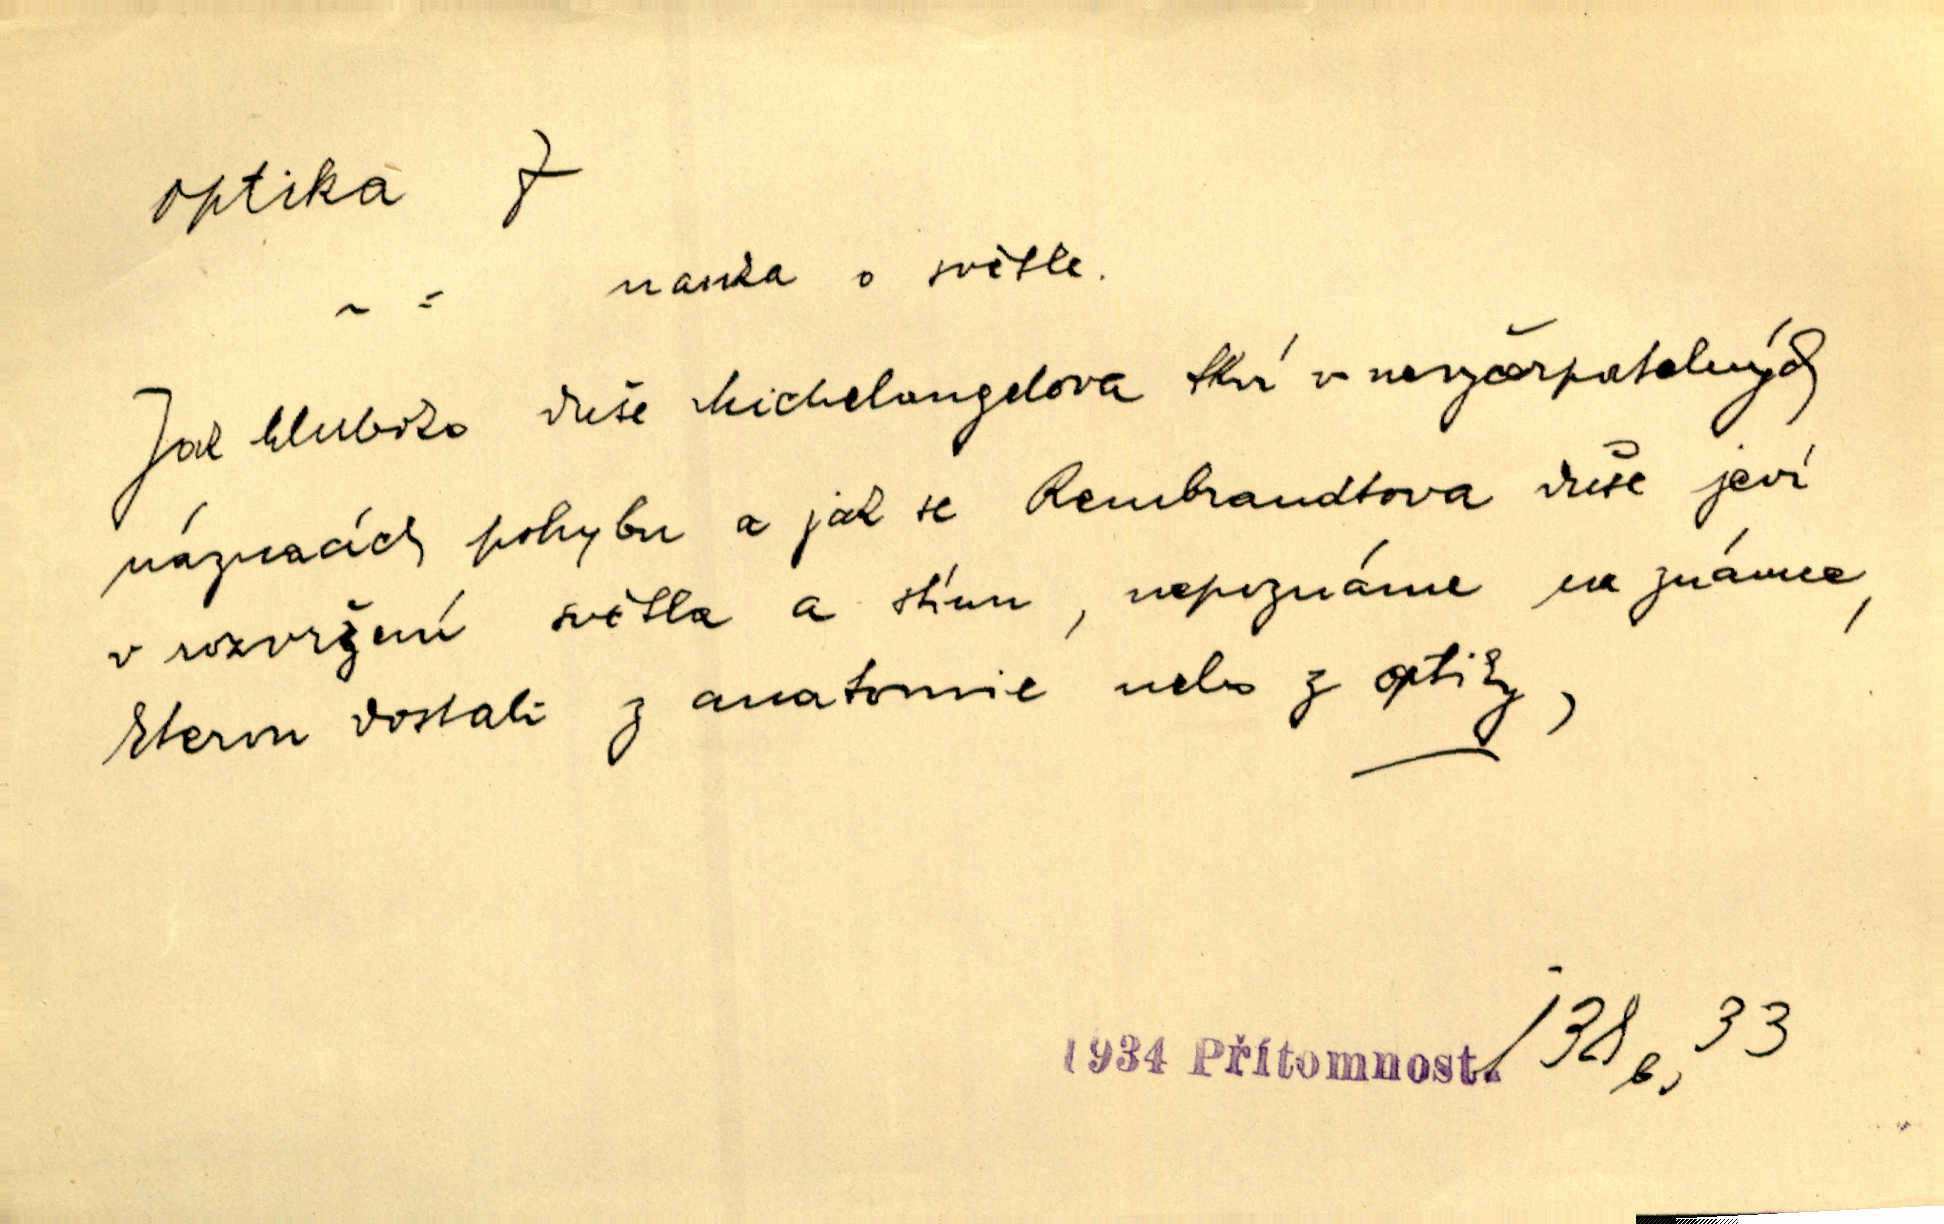 optika f
~ = nauka o světle.
Jak hluboko duše Michelangelova tkví v nevyčerpatelných
náznacích pohybu a jak se Rembrandtova duše jeví
v rozvržení světla a stínu, nepoznáme na známce,
kterou dostali z anatomie nebo z optiky,
1934 Přítomnost. 138b, 33